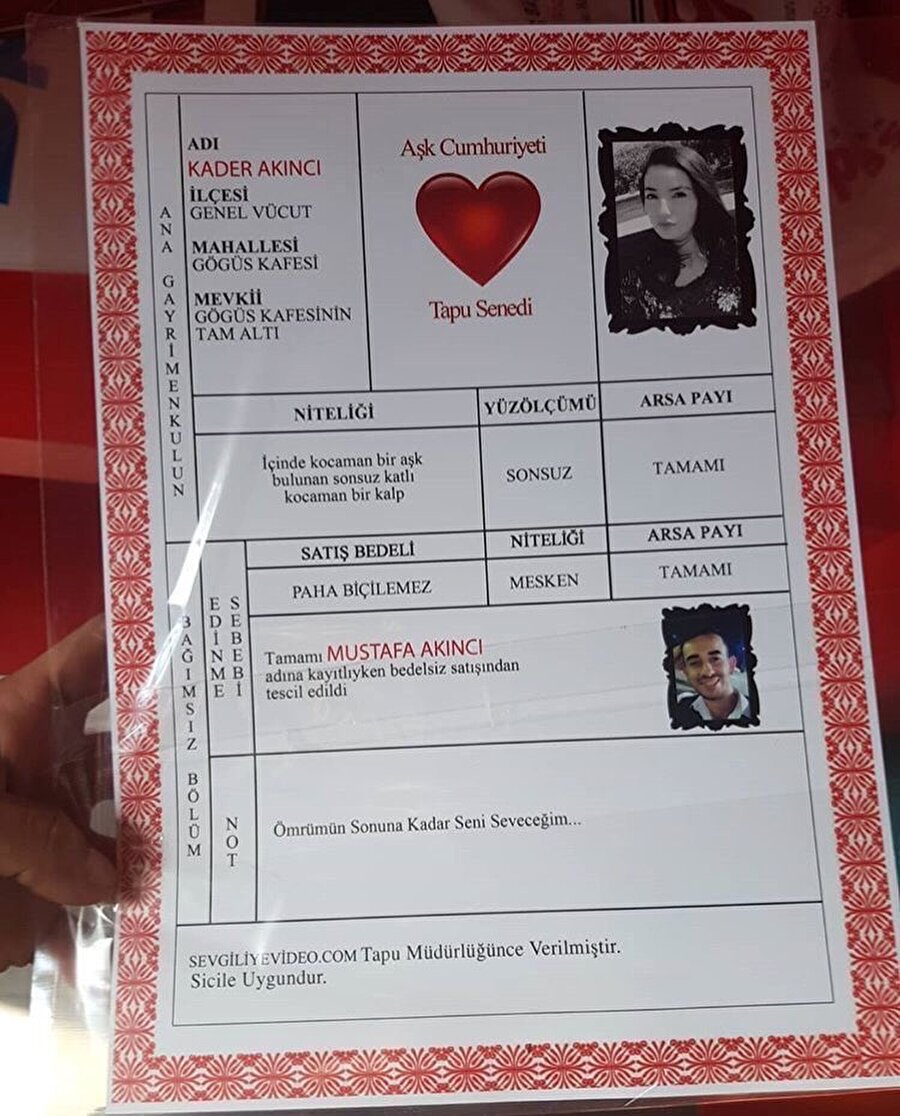 ANA GAYRİMENKULUN
ADI
KADER AKINCI
İLÇESİ
GENEL VÜCUT
MAHALLESİ
GÖGÜS KAFESİ
MEVKİİ
GÖGÜS KAFESİNİN
TAM ALTI
Aşk Cumhuriyeti
Tapu Senedi
NİTELİĞİ
YÜZÖLÇÜMÜ
ARSA PAYI
İçinde kocaman bir aşk
bulunan sonsuz katlı
kocaman bir kalp
SONSUZ
TAMAMI
BAĞIMSIZ BÖLÜM
EDİNME
SEBEBİ
SATIŞ BEDELİ
NİTELİĞİ
ARSA PAYI
PAHA BİÇİLEMEZ
MESKEN
TAMAMI
Tamamı MUSTAFA AKINCI
adına kayıtlıyken bedelsiz satışından
tescil edildi
NOT
Ömrümün Sonuna Kadar Seni Seveceğim...
SEVGİLİYEVİDEO.COM Tapu Müdürlüğünce Verilmiştir.
Sicile Uygundur.